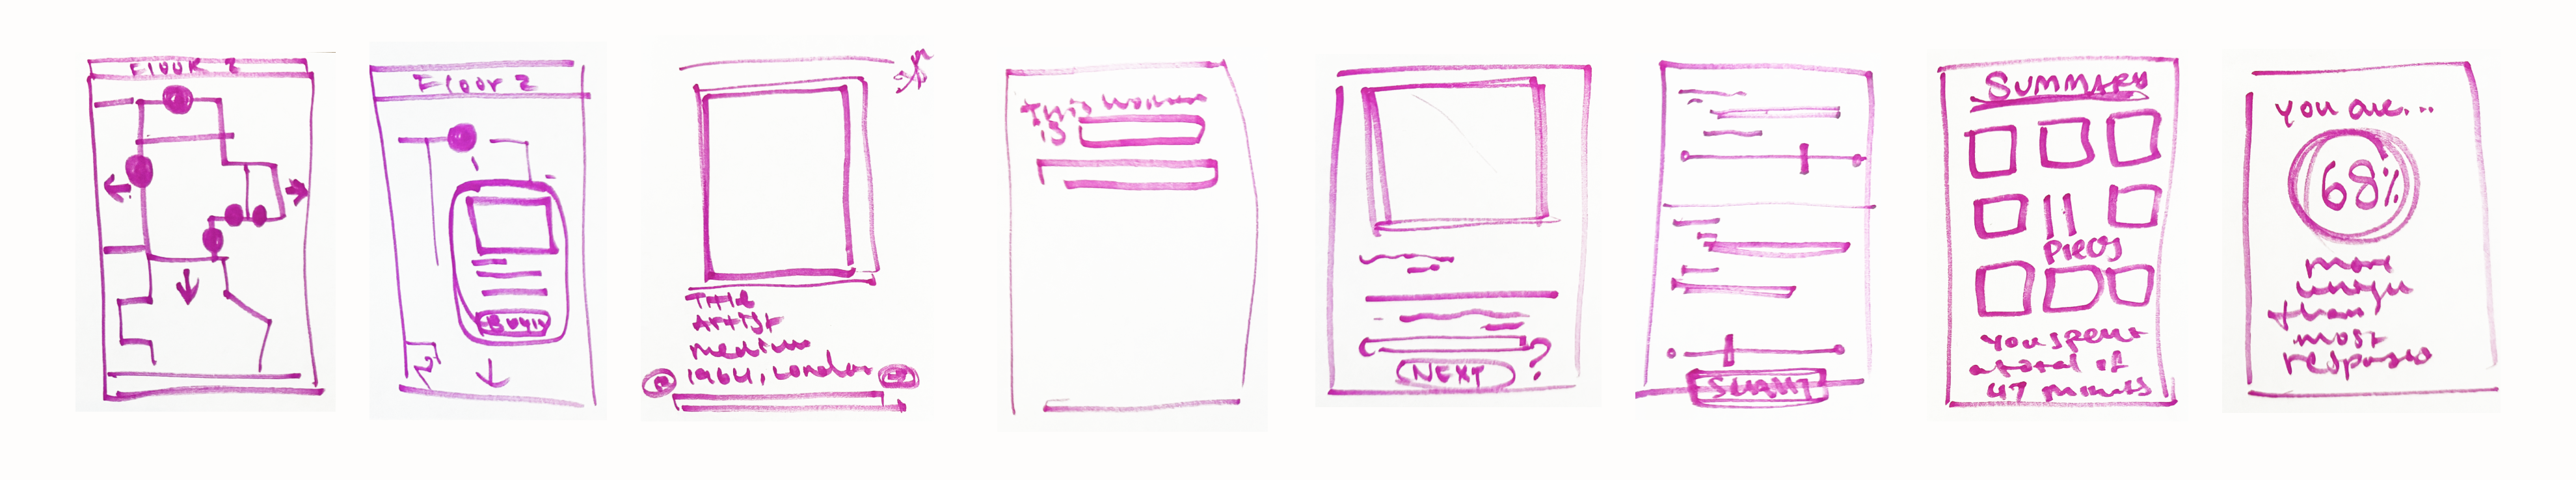 FLOOR 2
Floor 2
BEGIN
Title
Artist
Medium
1964, London
This woman
is
?
NEXT
SUBMIT
SUMMARY
11
PIECES
You spent
a total of
47 minutes
you are...
68%
more
unique
than
most
responses